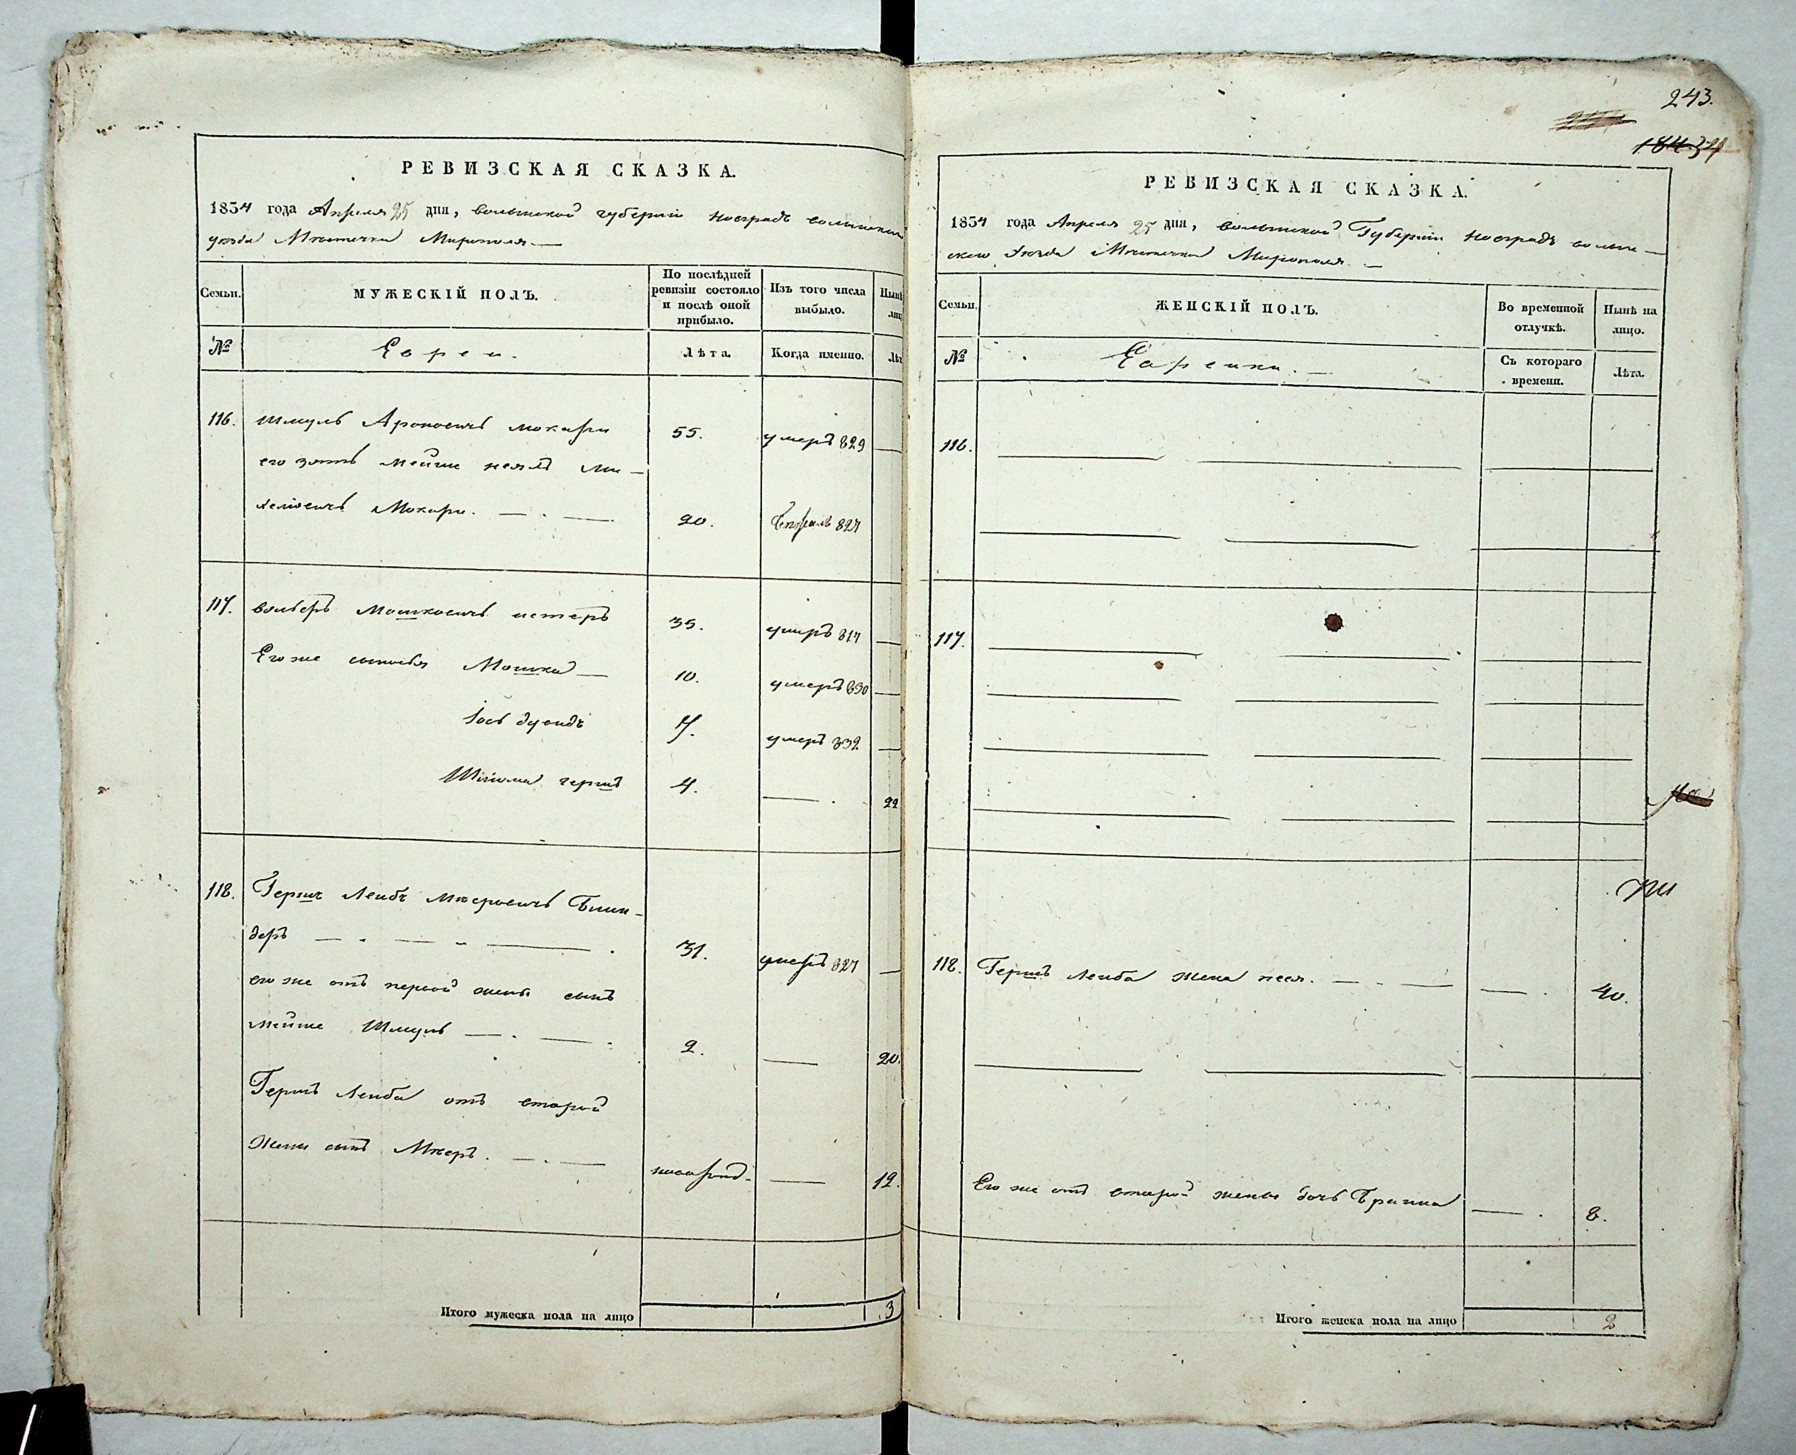 РЕВИЗСКАЯ СКАЗКА.
1834 года Апреля 25 дня, волынской губернии новградъ волынскаго
уезда Местечка Мирополя
Семьи.
МУЖЕСКІЙ ПОЛЪ.
По послѣдней ревизіи состояло и послѣ оной прибыло.
Изъ того числа выбыло.
№
Евреи.
Лѣта.
Когда именно.
116. Шмуль Ароновичъ Мокари 55. умеръ 829
его зять Мейше
Мокари. 20. 827
117. Вольфъ Мошковичъ 35. умеръ 817
Его же сыновья Мошка 10. умеръ 830
Іось Дувидъ 7. умеръ 832
Шліома Гершъ 4. 22
118. Гершъ Лейбъ Меэровичъ Бин-
деръ 31. умеръ 827
его же отъ первой жены сынъ
Мейше Шмуль 2. 20.
Гершъ Лейба отъ второй
жены сынъ Меэръ. новорожд. 12.
Итого мужеска пола на лицо 3
243.
РЕВИЗСКАЯ СКАЗКА.
1834 года Апреля 25 дня, волынской Губернии новградъ волын-
скаго уезда Местечка Мирополя
Семьи.
ЖЕНСКІЙ ПОЛЪ.
Во временной отлучкѣ.
Нынѣ на лицо.
№
Еврейки.
Съ котораго времени.
Лѣта.
116.
117.
118. Гершъ Лейба жена Песя. 40.
Его же отъ второй жены дочь 8.
Итого женска пола на лицо 2